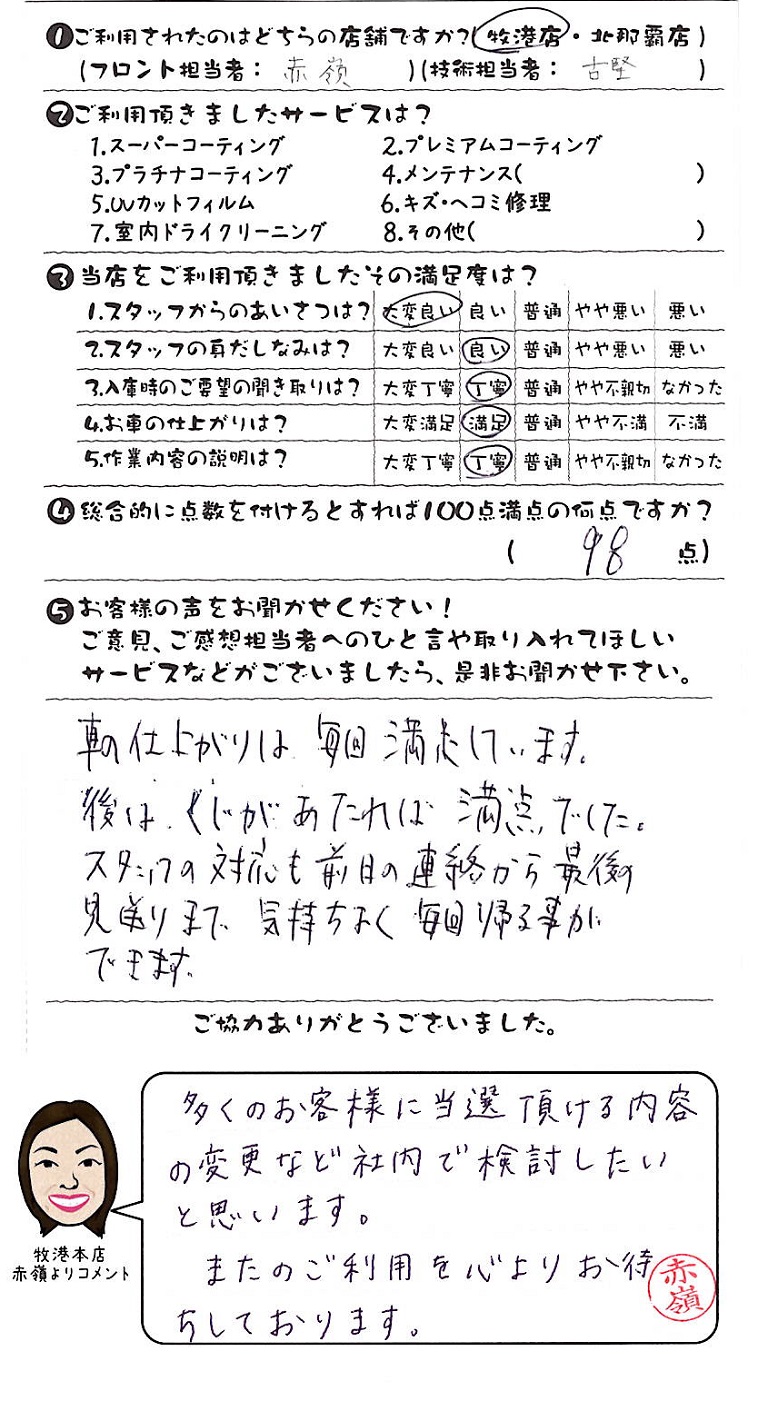 ❶ご利用されたのはどちらの店舗ですか?(牧港店・北那覇店)
(フロント担当者: 赤嶺 )(技術担当者: 古堅 )
❷ご利用頂きましたサービスは?
1.スーパーコーティング 2.プレミアムコーティング
3.プラチナコーティング 4.メンテナンス( )
5.UVカットフィルム 6.キズ・ヘコミ修理
7.室内ドライクリーニング 8.その他( )
❸当店をご利用頂きましたその満足度は?
1.スタッフからのあいさつは? 大変良い 良い 普通 やや悪い 悪い
2.スタッフの身だしなみは? 大変良い 良い 普通 やや悪い 悪い
3.入庫時のご要望の聞き取りは? 大変丁寧 丁寧 普通 やや不親切 なかった
4.お車の仕上がりは? 大変満足 満足 普通 やや不満 不満
5.作業内容の説明は? 大変丁寧 丁寧 普通 やや不親切 なかった
❹総合的に点数を付けるとすれば100点満点の何点ですか?
( 98 点)
❺お客様の声をお聞かせください!
ご意見、ご感想担当者へのひと言や取り入れてほしい
サービスなどがございましたら、是非お聞かせ下さい。
車の仕上がりは 毎回 満足しています。
後は、くじが あたれば 満点でした。
スタッフの 対応も 前日の連絡から 最後の
見送りまで 気持ちよく 毎回 帰る事が
できます。
ご協力ありがとうございました。
多くのお客様に当選頂ける内容
の変更など社内で検討したい
と思います。
またのご利用を心よりお待
ちしております。
赤嶺
牧港本店
赤嶺よりコメント